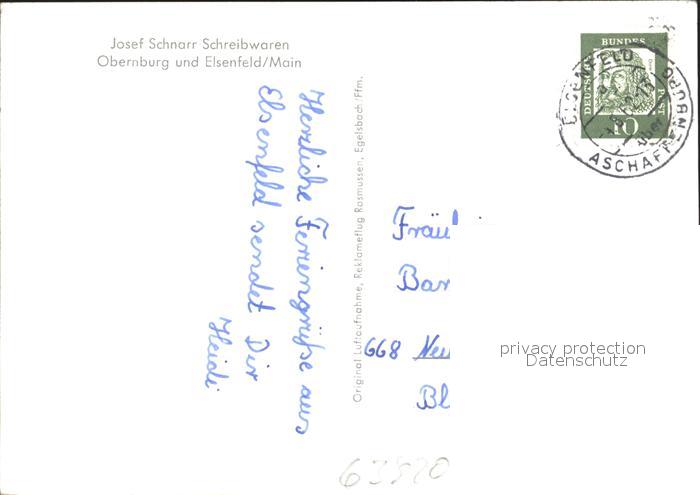 Josef Schnarr Schreibwaren
Obernburg und Elsenfeld/Main
Herzliche Feriengrüße aus
Elsenfeld sendet Dir
Heidi
Original Luftaufnahme, Reklameflug Rasmussen, Egelsbach/Ffm.
DEUTSCHE
BUNDES
POST
10
ELSENFELD
über
ASCHAFFENBURG
Fräu
Bar
668 Neu
Bl
privacy protection
Datenschutz
63820